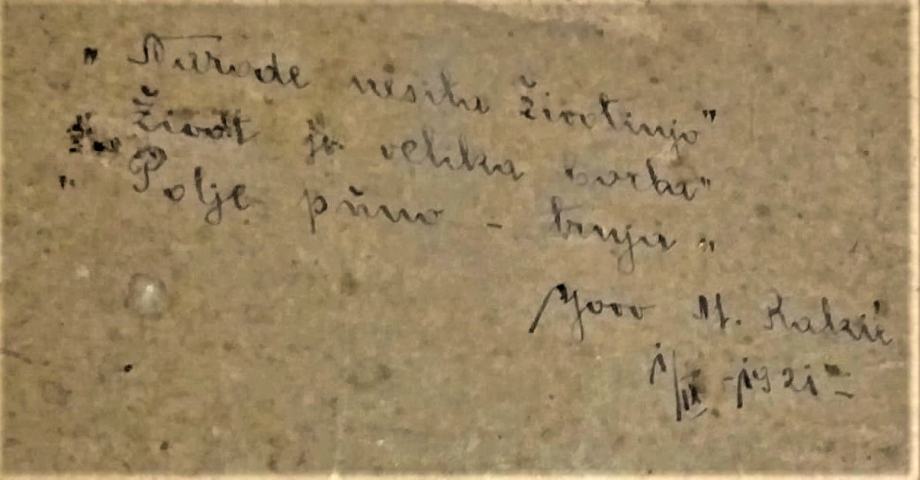 „Narode nesita životinjo"
Život je velika borba"
„Polje puno - trnja„
Jovo M. Rakić
1/IX -1921-